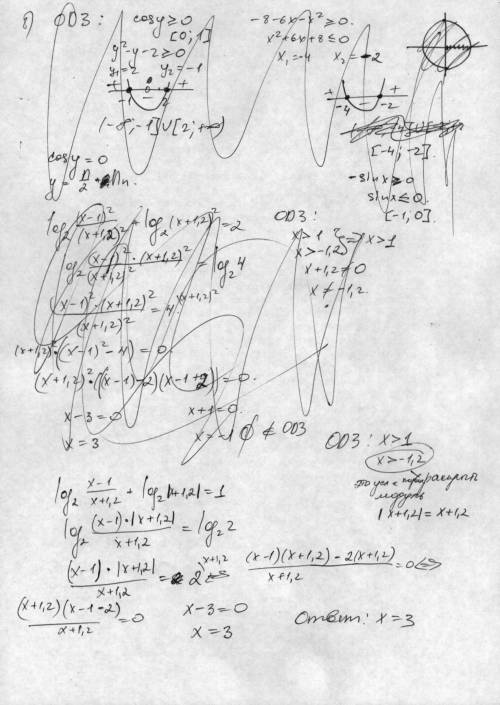 8) ОДЗ: cosy ≥ 0
[0; 1]
y² - y - 2 ≥ 0
y₁ = 2 y₂ = -1
+ 0 - +
-1 2
(-∞; -1] ∪ [2; +∞)
cosy = 0
-8 - 6x - x² ≥ 0.
x² + 6x + 8 ≤ 0
x₁ = -4 x₂ = -2
+ - +
-4 -2
[-4; -2].
-sinx ≥ 0
sinx ≤ 0
[-1, 0].
log₂ (x-1)²/(x+1,2)² + log₂ (x+1,2)² = 2
log₂ (x-1)² · (x+1,2)²/(x+1,2)² = log₂ 4
(x-1)² · (x+1,2)²/(x+1,2)² = 4 \(x+1,2)²
(x+1,2)² · ((x-1)² - 4) = 0.
(x+1,2)² · ((x-1)-2)(x-1+2) = 0.
x - 3 = 0 x + 1 = 0.
x = 3 x = -1 ∉ ОДЗ
ОДЗ:
x > 1
x > -1,2 } <=> x > 1
x + 1,2 ≠ 0
x ≠ -1,2.
ОДЗ: x > 1
x > -1,2
модуль
|x+1,2| = x+1,2
log₂ x-1/x+1,2 + log₂ |x+1,2| = 1
log₂ (x-1)·|x+1,2|/x+1,2 = log₂ 2
(x-1)·|x+1,2|/x+1,2 = 2 \x+1,2 <=> (x-1)(x+1,2) - 2(x+1,2)/x+1,2 = 0 <=>
(x+1,2)(x-1-2)/x+1,2 = 0 x - 3 = 0
x = 3 Ответ: x = 3